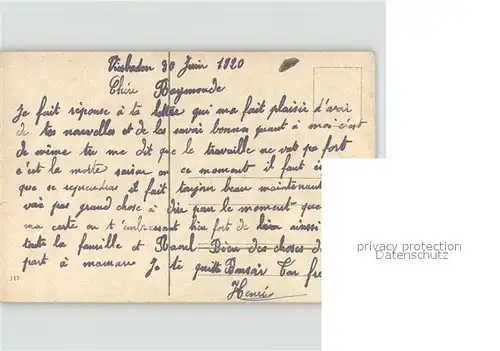 Viesbaden 30 Juin 1920
Chére Raymonde
Je fait réponse à ta lettre qui ma fait plaisir d'avoir
de tes nouvelles et de les savoir bonnes quant à moi c'est
de même tu me dit que le travaille ne vat pa fort
c'est la morte saison en ce moment il faut
que se il fait toujour beau maintenant
vais pas grand chose à dire pour le moment que
ma carte en t'embrassant bien fort de loin ainsi
toute la famille et Bien des choses de
part à maman Je te quitte Bonsoir Ton fre
Henri
117
privacy protection
Datenschutz